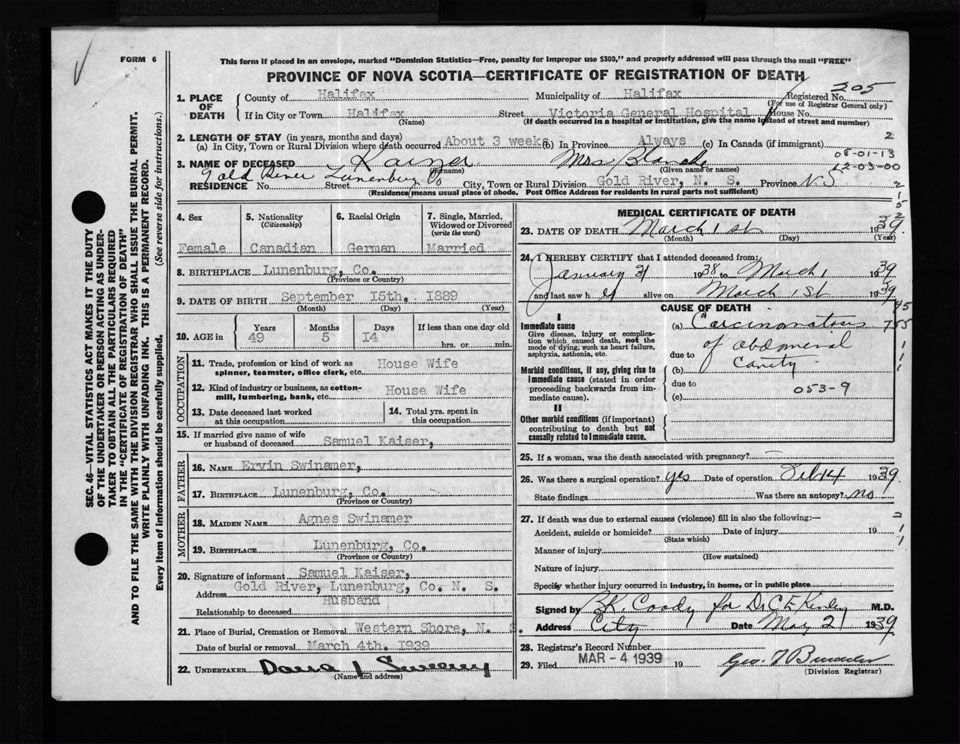 FORM 6
This form if placed in an envelope, marked "Dominion Statistics—Free, penalty for improper use $300," and properly addressed will pass through the mail "FREE"
PROVINCE OF NOVA SCOTIA—CERTIFICATE OF REGISTRATION OF DEATH
205
1. PLACE OF DEATH County of Halifax Municipality of Halifax Registered No.
(For use of Registrar General only)
If in City or Town Halifax Street Victoria General Hospital House No.
(Name) (If death occurred in a hospital or institution, give the name instead of street and number)
2. LENGTH OF STAY (in years, months and days)
(a) In City, Town or Rural Division where death occurred About 3 weeks (b) In Province Always (c) In Canada (if immigrant)
2
05-01-13
3. NAME OF DECEASED Kaizer Mrs Blanche
(Surname) (Given name or names)
12-03-00
Gold River Lunenburg Co
RESIDENCE No. Street City, Town or Rural Division Gold River, N. S. Province N.S
(Residence means usual place of abode. Post Office Address for residents in rural parts not sufficient)
4. Sex 5. Nationality (Citizenship) 6. Racial Origin 7. Single, Married, Widowed or Divorced (write the word)
Female Canadian German Married
8. BIRTHPLACE Lunenburg, Co.
(Province or Country)
9. DATE OF BIRTH September 15th. 1889
(Month) (Day) (Year)
10. AGE in Years Months Days If less than one day old
49 5 14 hrs. or min.
OCCUPATION
11. Trade, profession or kind of work as spinner, teamster, office clerk, etc. House Wife
12. Kind of industry or business, as cotton-mill, lumbering, bank, etc. House Wife
13. Date deceased last worked at this occupation 14. Total yrs. spent in this occupation
15. If married give name of wife or husband of deceased Samuel Kaiser,
FATHER
16. NAME Ervin Swinamer,
17. BIRTHPLACE Lunenburg, Co.
MOTHER
18. MAIDEN NAME Agnes Swinamer
19. BIRTHPLACE Lunenburg, Co.
(Province or Country)
20. Signature of informant Samuel Kaiser,
Address Gold River, Lunenburg, Co. N. S.
Relationship to deceased Husband
21. Place of Burial, Cremation or Removal Western Shore, N. S.
Date of burial or removal March 4th. 1939
22. UNDERTAKER
(Name and address)
MEDICAL CERTIFICATE OF DEATH
23. DATE OF DEATH March 1st 1939
(Month) (Day) (Year)
24. I HEREBY CERTIFY that I attended deceased from:
January 31 1938 to March 1 1939
and last saw h er alive on March 1st 1939
CAUSE OF DEATH
I
Immediate cause
Give disease, injury or complication which caused death, not the mode of dying, such as heart failure, asphyxia, asthenia, etc.
(a) Carcinomatosis
of abdominal
due to
Morbid conditions, if any, giving rise to immediate cause (stated in order proceeding backwards from immediate cause).
(b) Cavity
due to
053-9
(c)
II
Other morbid conditions (if important) contributing to death but not causally related to immediate cause.
25. If a woman, was the death associated with pregnancy? —
26. Was there a surgical operation? yes Date of operation Feb 14 1939
State findings Was there an autopsy? no
27. If death was due to external causes (violence) fill in also the following:—
Accident, suicide or homicide? Date of injury 19
(State which)
Manner of injury
(How sustained)
Nature of injury
Specify whether injury occurred in industry, in home, or in public place
Signed by B.K. Coady for Dr C E Kinley M.D.
Address City Date May 21 1939
28. Registrar's Record Number
29. Filed MAR - 4 1939 19
(Division Registrar)
SEC. 46—VITAL STATISTICS ACT MAKES IT THE DUTY
OF THE UNDERTAKER OR PERSON ACTING AS UNDER-
TAKER TO OBTAIN ALL THE PARTICULARS REQUIRED
IN THE "CERTIFICATE OF REGISTRATION OF DEATH"
AND TO FILE THE SAME WITH THE DIVISION REGISTRAR WHO SHALL ISSUE THE BURIAL PERMIT.
WRITE PLAINLY WITH UNFADING INK. THIS IS A PERMANENT RECORD.
Every item of information should be carefully supplied. (See reverse side for instructions.)